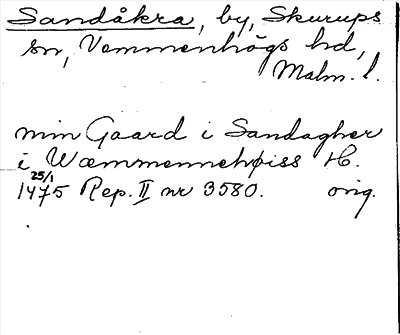 Sandåkra, by, Skurups
sn, Vemmenhögs hd,
Malm. l.
min Gaard i Sandagher
i Wæmmennehøiss H.
25/1
1475 Rep. II nr 3580. orig.